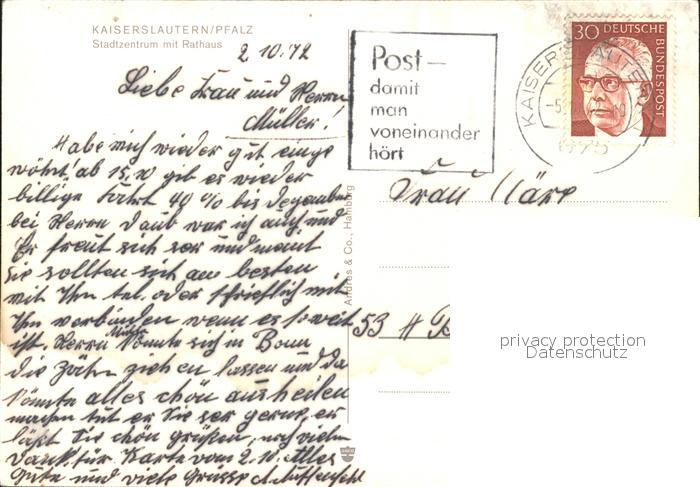 KAISERSLAUTERN/PFALZ
Stadtzentrum mit Rathaus
2 10.72
Liebe Frau und Herrn
Müller!
Habe mich wieder gut einge
wöhnt! ab 15.10 gib es wieder
billige Fahrt 40% bis Dezember
bei Herrn Daub war ich auch und
Er freut sich ser und meint
Sie sollten sich am besten
mit Ihn tel. oder schriftlich mit
Ihn verbinden wenn es so weit
ist. Herrn Müller könnte sich in Bonn
die Zähn ziehen lassen und da
könnte alles schön ausheilen
machen tut er Sie ser gerne, er
läßt Sie schön grüßen, noch vielen
Dank für Karte vom 2.10. Alles
Gute und viele Grüsse
Post-
damit
man
voneinander
hört
KAISERSLAUTERN
675
30 DEUTSCHE
BUNDESPOST
Frau
53
Andres & Co., Hamburg
privacy protection
Datenschutz